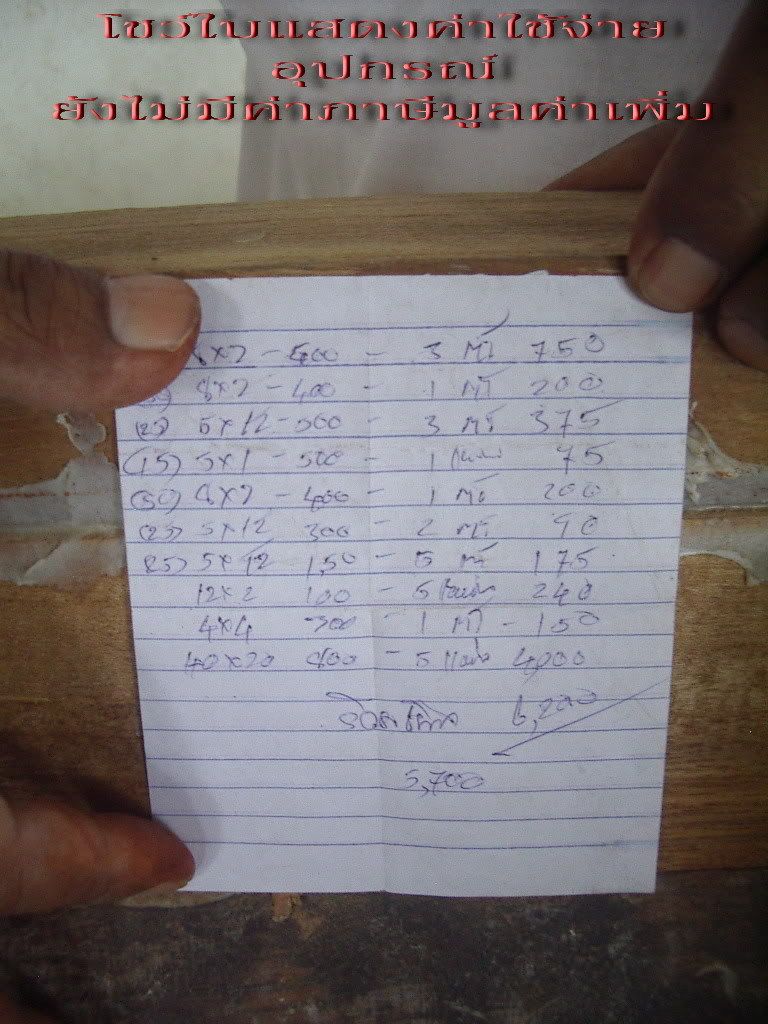 โชว์ใบแสดงค่าใช้จ่าย
อุปกรณ์
ยังไม่มีค่าภาษีมูลค่าเพิ่ม
8x2 - 500 - 3 750
8x2 - 400 - 1 200
(25) 5x12 - 500 - 3 375
(15) 5x1 - 500 - 1 แผ่น 75
8x2 - 400 - 1 200
(25) 5x12 300 - 2 90
(25) 5x12 1,50 - 5 175
12x2 100 - 5 แผ่น 240
4x4 300 - 1 - 150
40x20 800 - 5 แผ่น 4,000
6,200
5,700